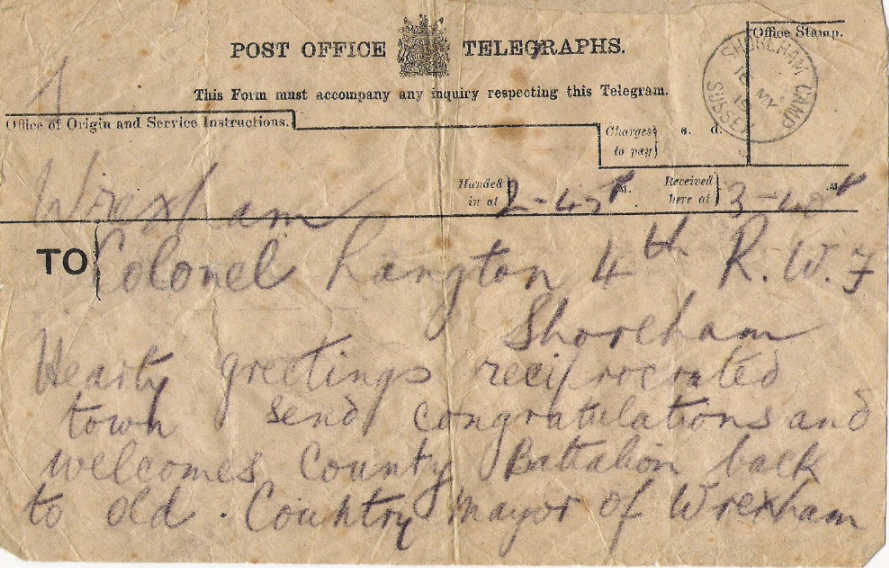 POST OFFICE TELEGRAPHS.
Office Stamp.
SHOREHAM CAMP
SUSSEX
This Form must accompany any inquiry respecting this Telegram.
Office of Origin and Service Instructions.
Charges to pay
s. d.
Wrexham
Handed in at 2-45 P M.
Received here at 3-40 P M.
TO Colonel Langton 4th R.W.F
Shoreham
Hearty greetings reciprocrated
town send congratulations and
welcomes County Battalion back
to old . Country Mayor of Wrexham